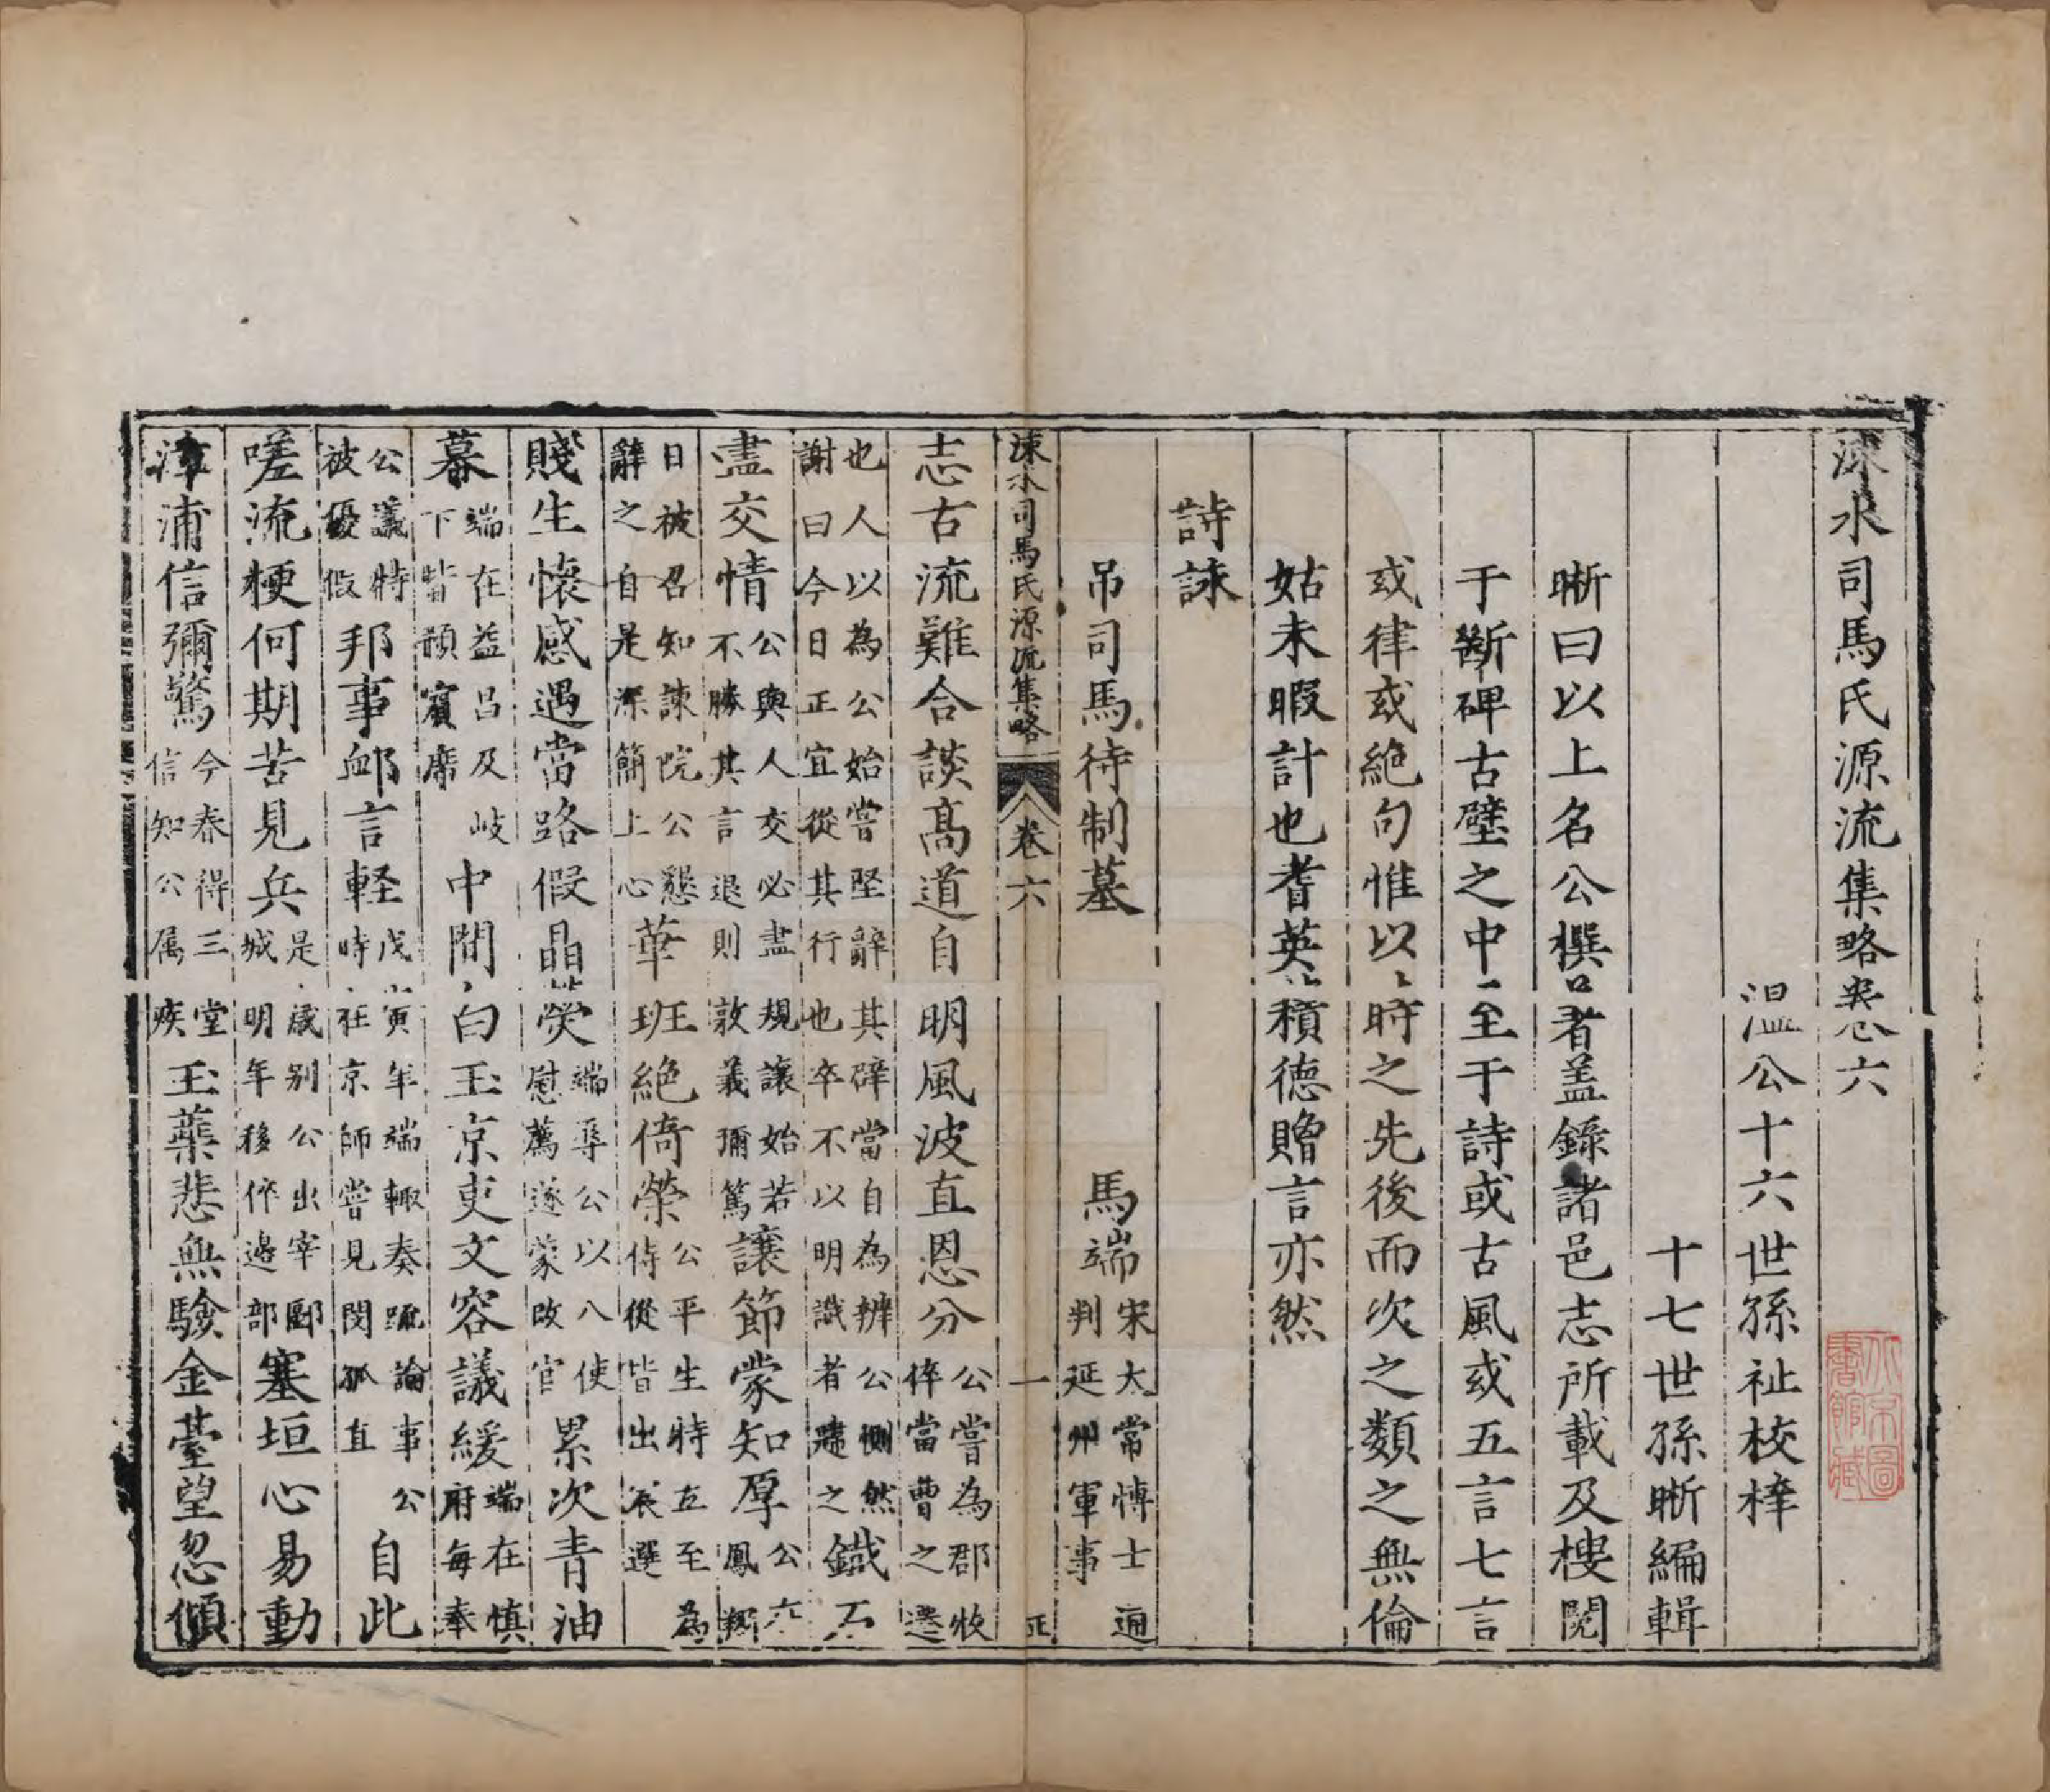 涑水司馬氏源流集略卷六
溫公十六世孫祉校梓
十七世孫晰編輯
晰曰以上名公撰呂者盖錄諸邑志所載及搜閱
于斷碑古壁之中至于詩或古風或五言七言
或律或絕句惟以時之先後而次之類之無倫
姑未暇計也耆英積德贈言亦然
詩詠
吊司馬待制墓 馬端 宋大常博士通判延州軍事
涑水司馬氏源流集略 卷六 一 正
志古流難合談高道自明風波直恩分 公嘗為郡牧倅當曹之遷
也人以為公始嘗堅辭其辟當自為辨公惻然謝曰今日正宜從其行也卒不以明識者韙之 鐵石
盡交情 公與人交必盡規讓始若不勝其言退則敦義彌篤 讓節蒙知厚 公六鳳翔
日被召知諫院公懇辭之自是深簡上心 華班絕倚榮 公平生時五至為侍從皆出宸選
賤生懷感遇當路假晶熒 端辱公以八使慰薦遂蒙改官 累次青油
幕 端在益呂及岐下皆預賓席 中間白玉京吏文容議緩 端在慎府每奉
公議特被優假 邦事䘏言軽 戊寅年端輙奏疏論事公時在京師嘗見閔孤直 自此
嗟流梗何期苦見兵 是歲别公出宰郾城明年移倅邊部 塞垣心易動
漳浦信彌驚 今春得三堂信知公属疾 玉葉悲無驗金臺望忽傾